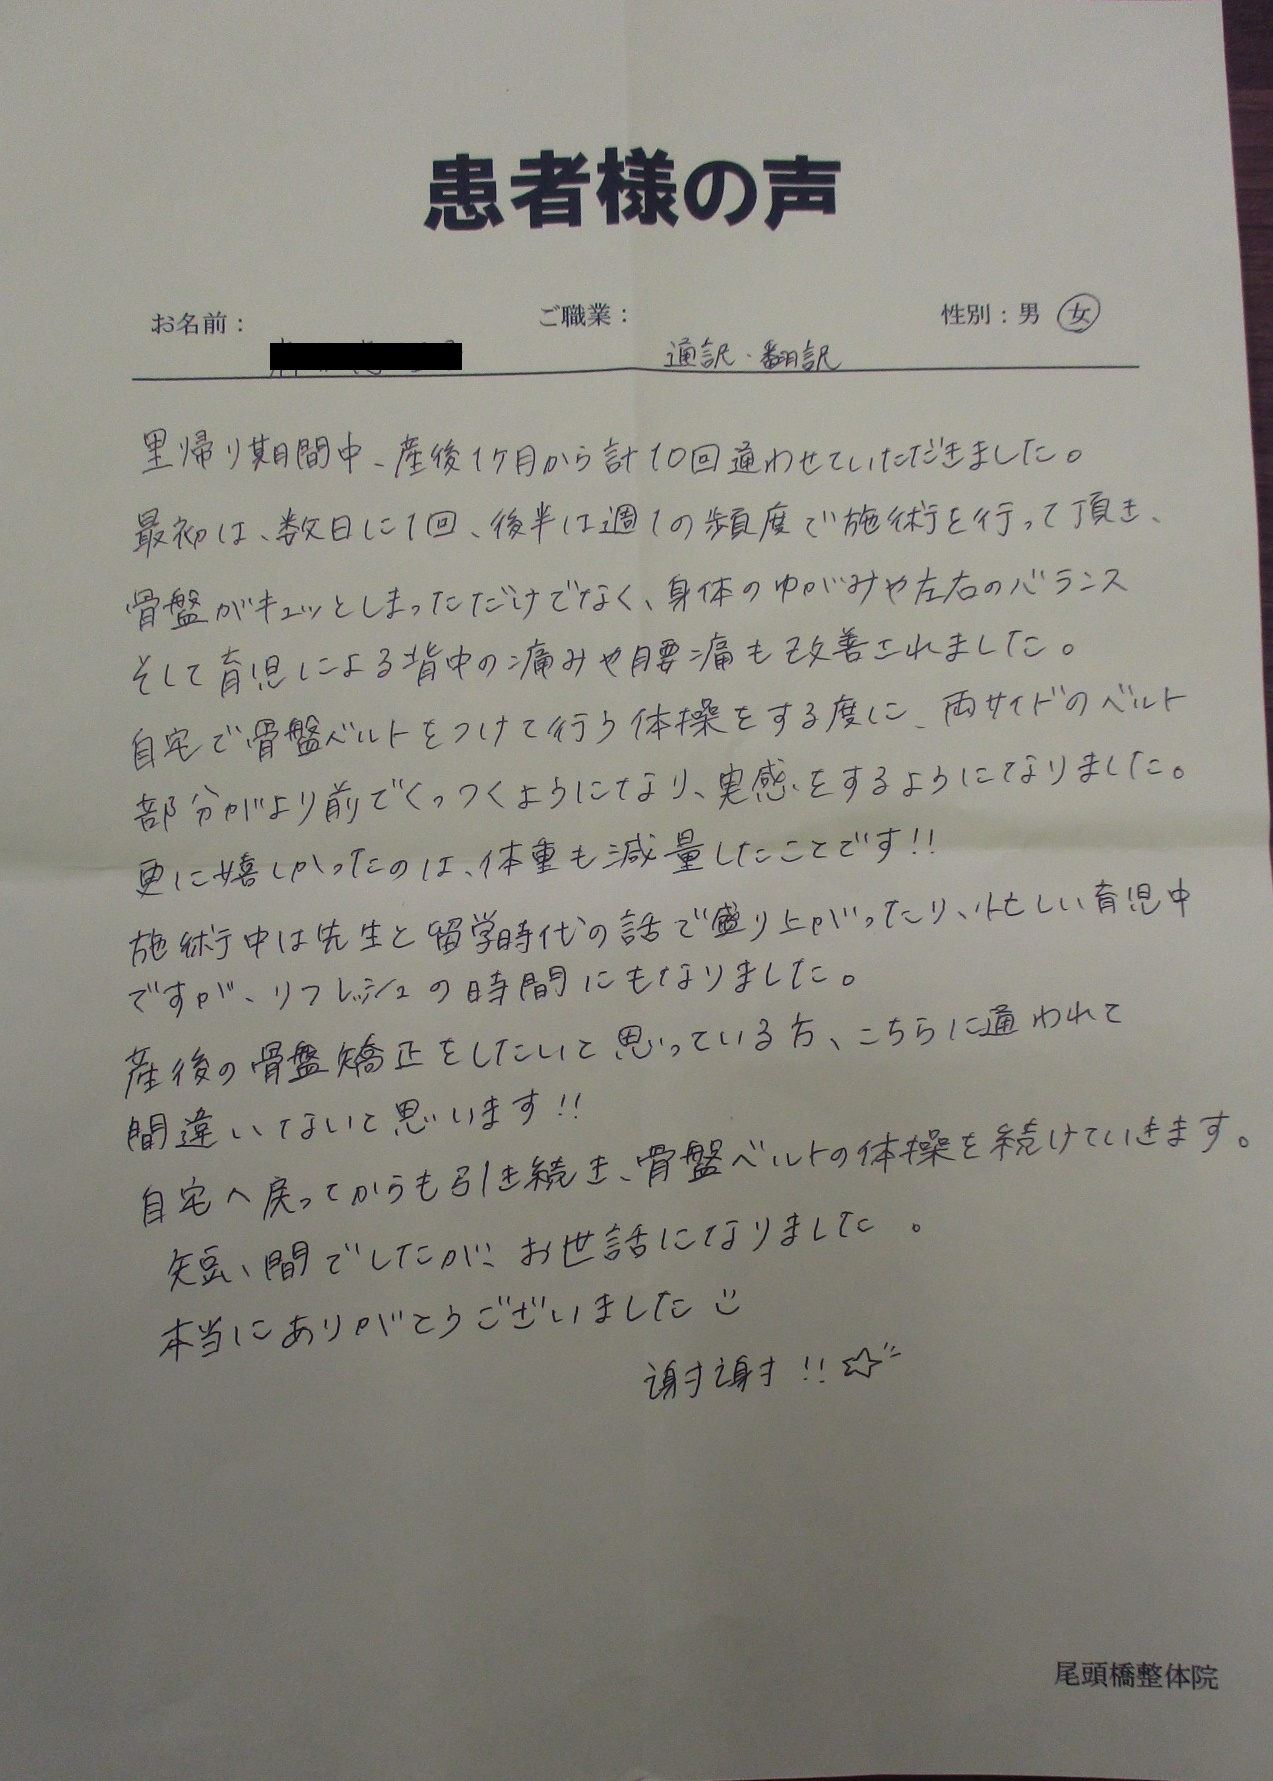 患者様の声
お名前： ご職業： 性別：男 女
通訳・翻訳
里帰り期間中、産後1ヶ月から計10回通わせていただきました。
最初は、数日に1回、後半は週1の頻度で施術を行って頂き、
骨盤がキュッとしまっただけでなく、身体のゆがみや左右のバランス
そして育児による背中の痛みや腰痛も改善されました。
自宅で骨盤ベルトをつけて行う体操をする度に、両サイドのベルト
部分がより前でくっつくようになり、実感をするようになりました。
更に嬉しかったのは、体重も減量したことです!!
施術中は先生と留学時代の話で盛り上がったり、忙しい育児中
ですが、リフレッシュの時間にもなりました。
産後の骨盤矯正をしたいと思っている方、こちらに通われて
間違いないと思います!!
自宅へ戻ってからも引き続き、骨盤ベルトの体操を続けていきます。
短い間でしたが、お世話になりました。
本当にありがとうございました
謝謝!!☆
尾頭橋整体院